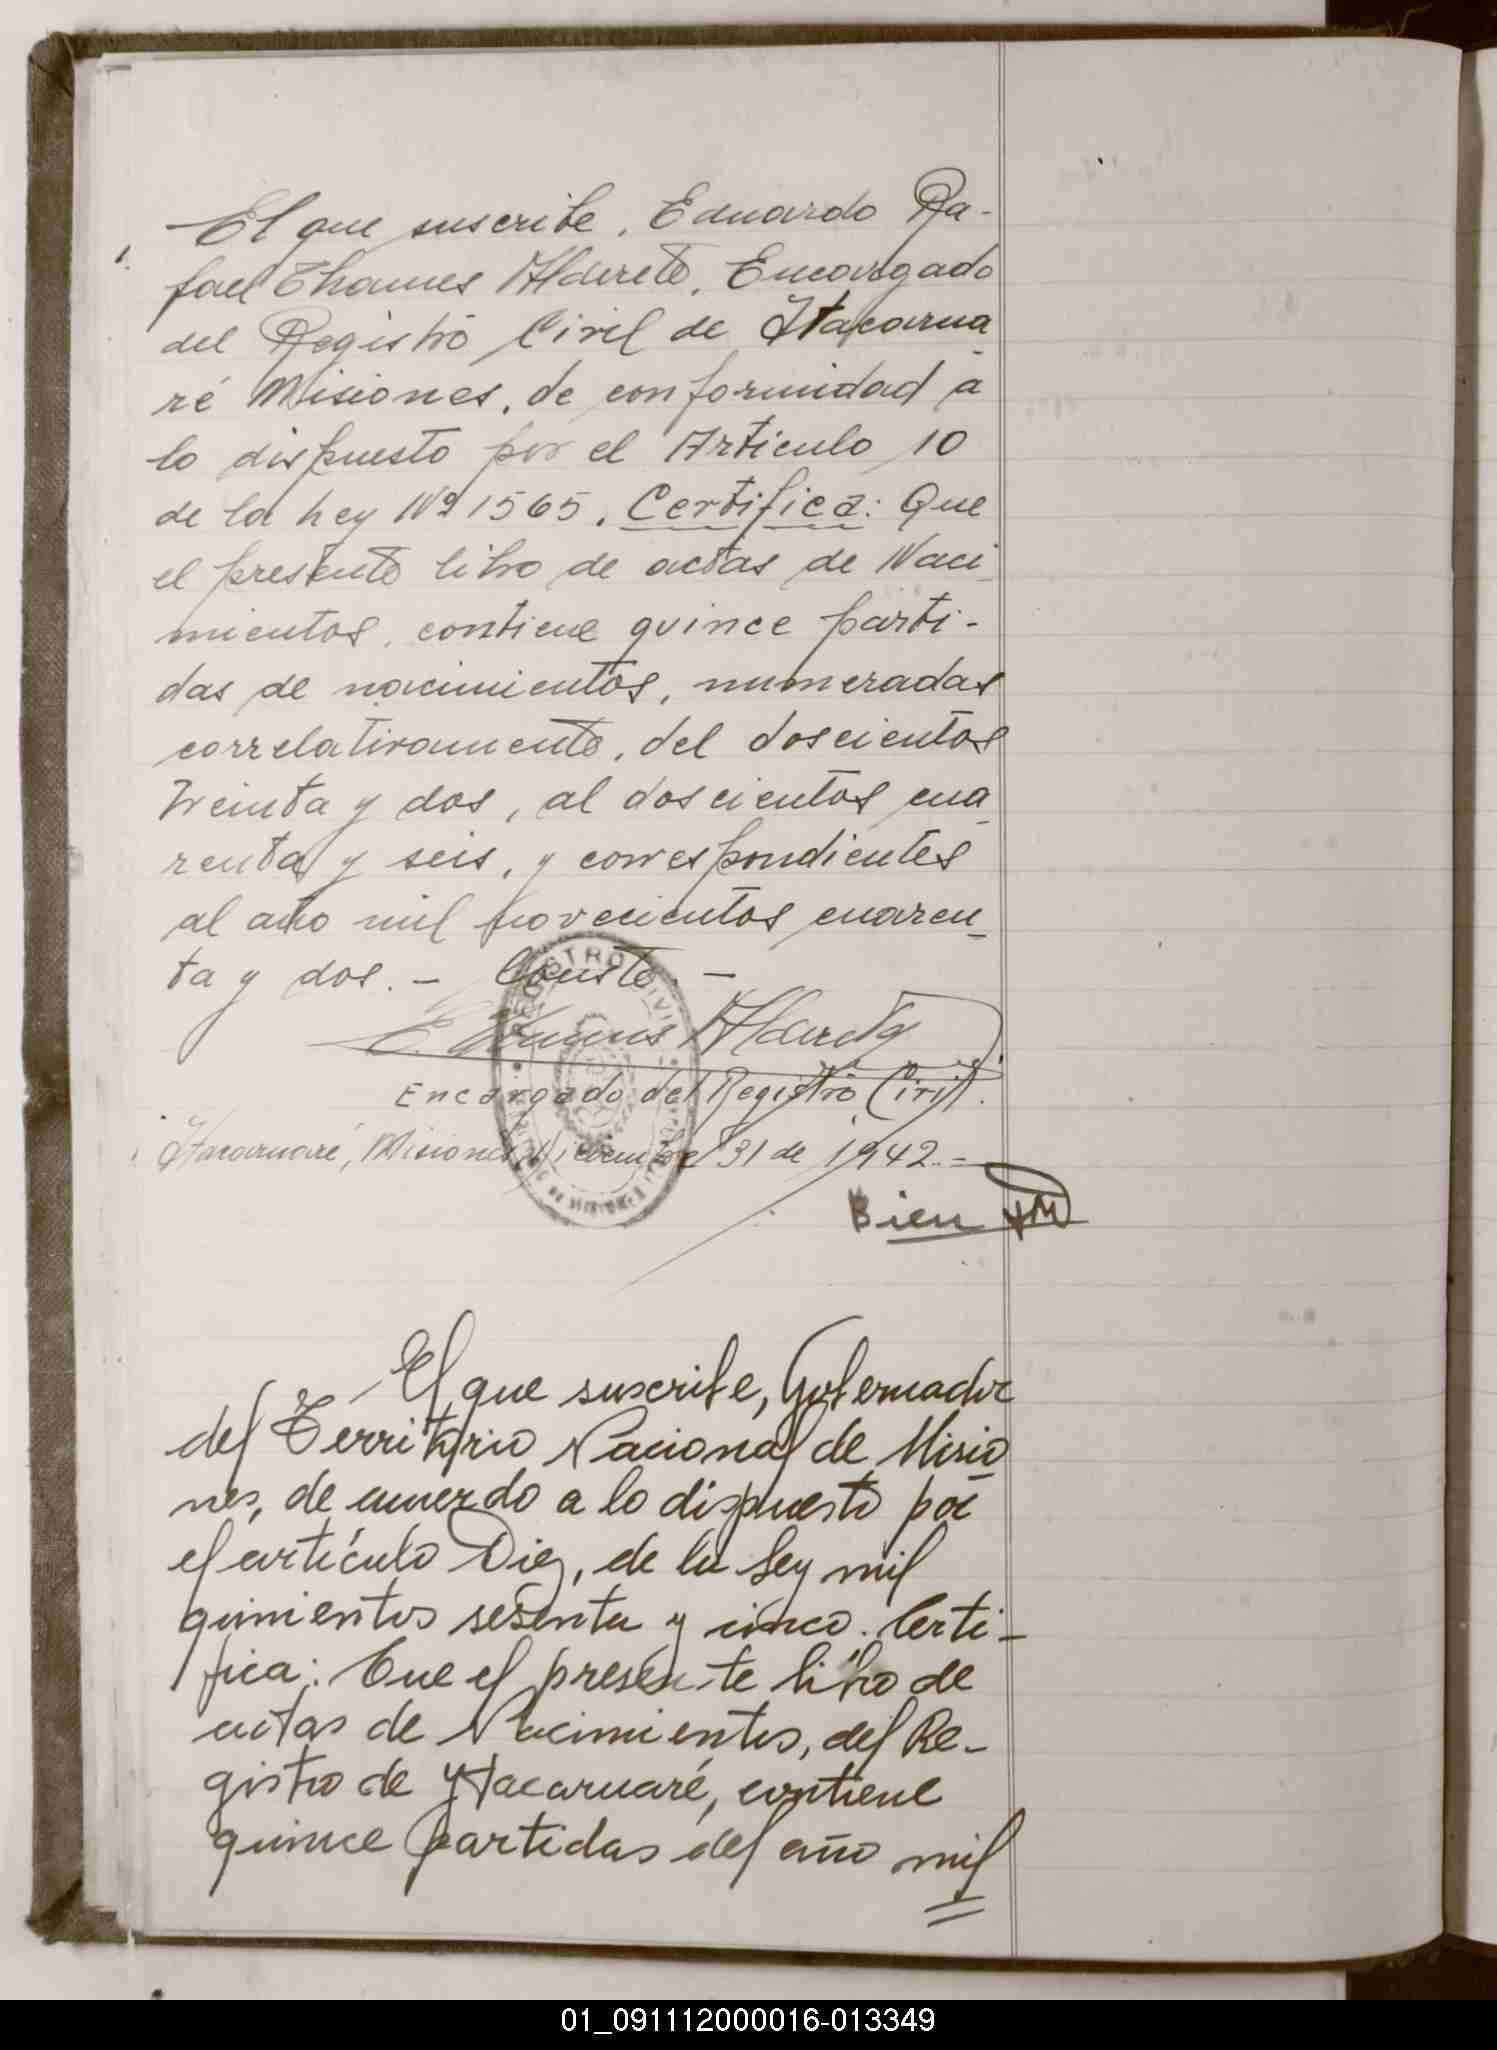 El que suscribe, Eduardo Ra-
fael Thames Alderete, Encargado
del Registro Civil de Itacarua
ré Misiones, de conformidad a
lo dispuesto por el Artículo 10
de la Ley Nº 1565, Certifica: Que
el presente libro de actas de Naci_
mientos, contiene quince parti-
das de nacimientos, numeradas
correlativamente, del doscientos
treinta y dos, al doscientos cua_
renta y seis, y correspondientes
al año mil novecientos cuaren_
ta y dos. - Conste. -
E. Thames Alderete
Encargado del Registro Civil.
Itacaruaré, Misiones, Diciembre 31 de 1942.-
REGISTRO CIVIL
Bien
El que suscribe, Gobernador
del Territorio Nacional de Misio_
nes, de acuerdo a lo dispuesto por
el artículo Diez, de la Ley mil
quinientos sesenta y cinco. Certi-
fica: Que el presente libro de
actas de Nacimientos, del Re-
gistro de Ytacaruaré, contiene
quince partidas del año mil
01_091112000016-013349